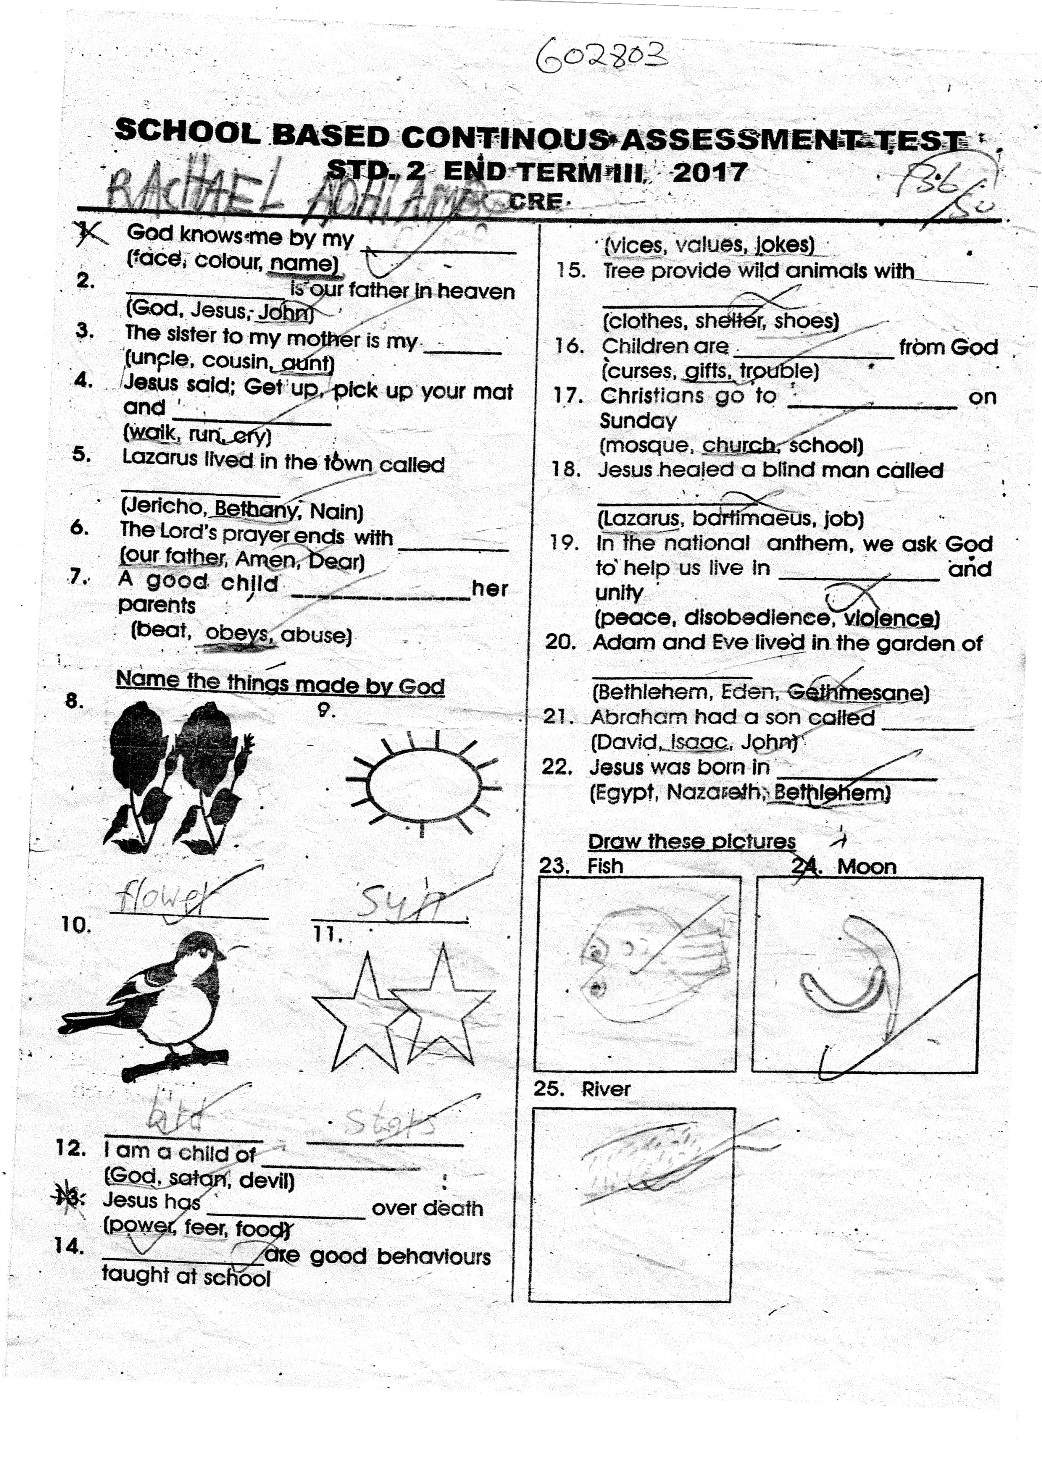 602803
SCHOOL BASED CONTINOUS ASSESSMENT TEST
STD. 2 END TERM III 2017
RACHAEL ADHIAMBO
CRE
36/50
1. God knows me by my ____________
(face, colour, name)
2. ____________ is our father in heaven
(God, Jesus, John)
3. The sister to my mother is my ______
(uncle, cousin, aunt)
4. Jesus said; Get up, pick up your mat
and ____________
(walk, run, cry)
5. Lazarus lived in the town called
____________
(Jericho, Bethany, Nain)
6. The Lord's prayer ends with ________
(our father, Amen, Dear)
7. A good child ____________ her
parents
(beat, obeys, abuse)
Name the things made by God
8.
9.
flower
sun
10.
11.
bird
stars
12. I am a child of ____________
(God, satan, devil)
13. Jesus has ____________ over death
(power, feer, food)
14. ____________ are good behaviours
taught at school
(vices, values, jokes)
15. Tree provide wild animals with______
____________
(clothes, shelter, shoes)
16. Children are ____________ from God
(curses, gifts, trouble)
17. Christians go to ____________ on
Sunday
(mosque, church, school)
18. Jesus healed a blind man called
____________
(Lazarus, bartimaeus, job)
19. In the national anthem, we ask God
to help us live in ____________ and
unity
(peace, disobedience, violence)
20. Adam and Eve lived in the garden of
____________
(Bethlehem, Eden, Gethmesane)
21. Abraham had a son called ________
(David, Isaac, John)
22. Jesus was born in ____________
(Egypt, Nazareth, Bethlehem)
Draw these pictures
23. Fish
24. Moon
25. River